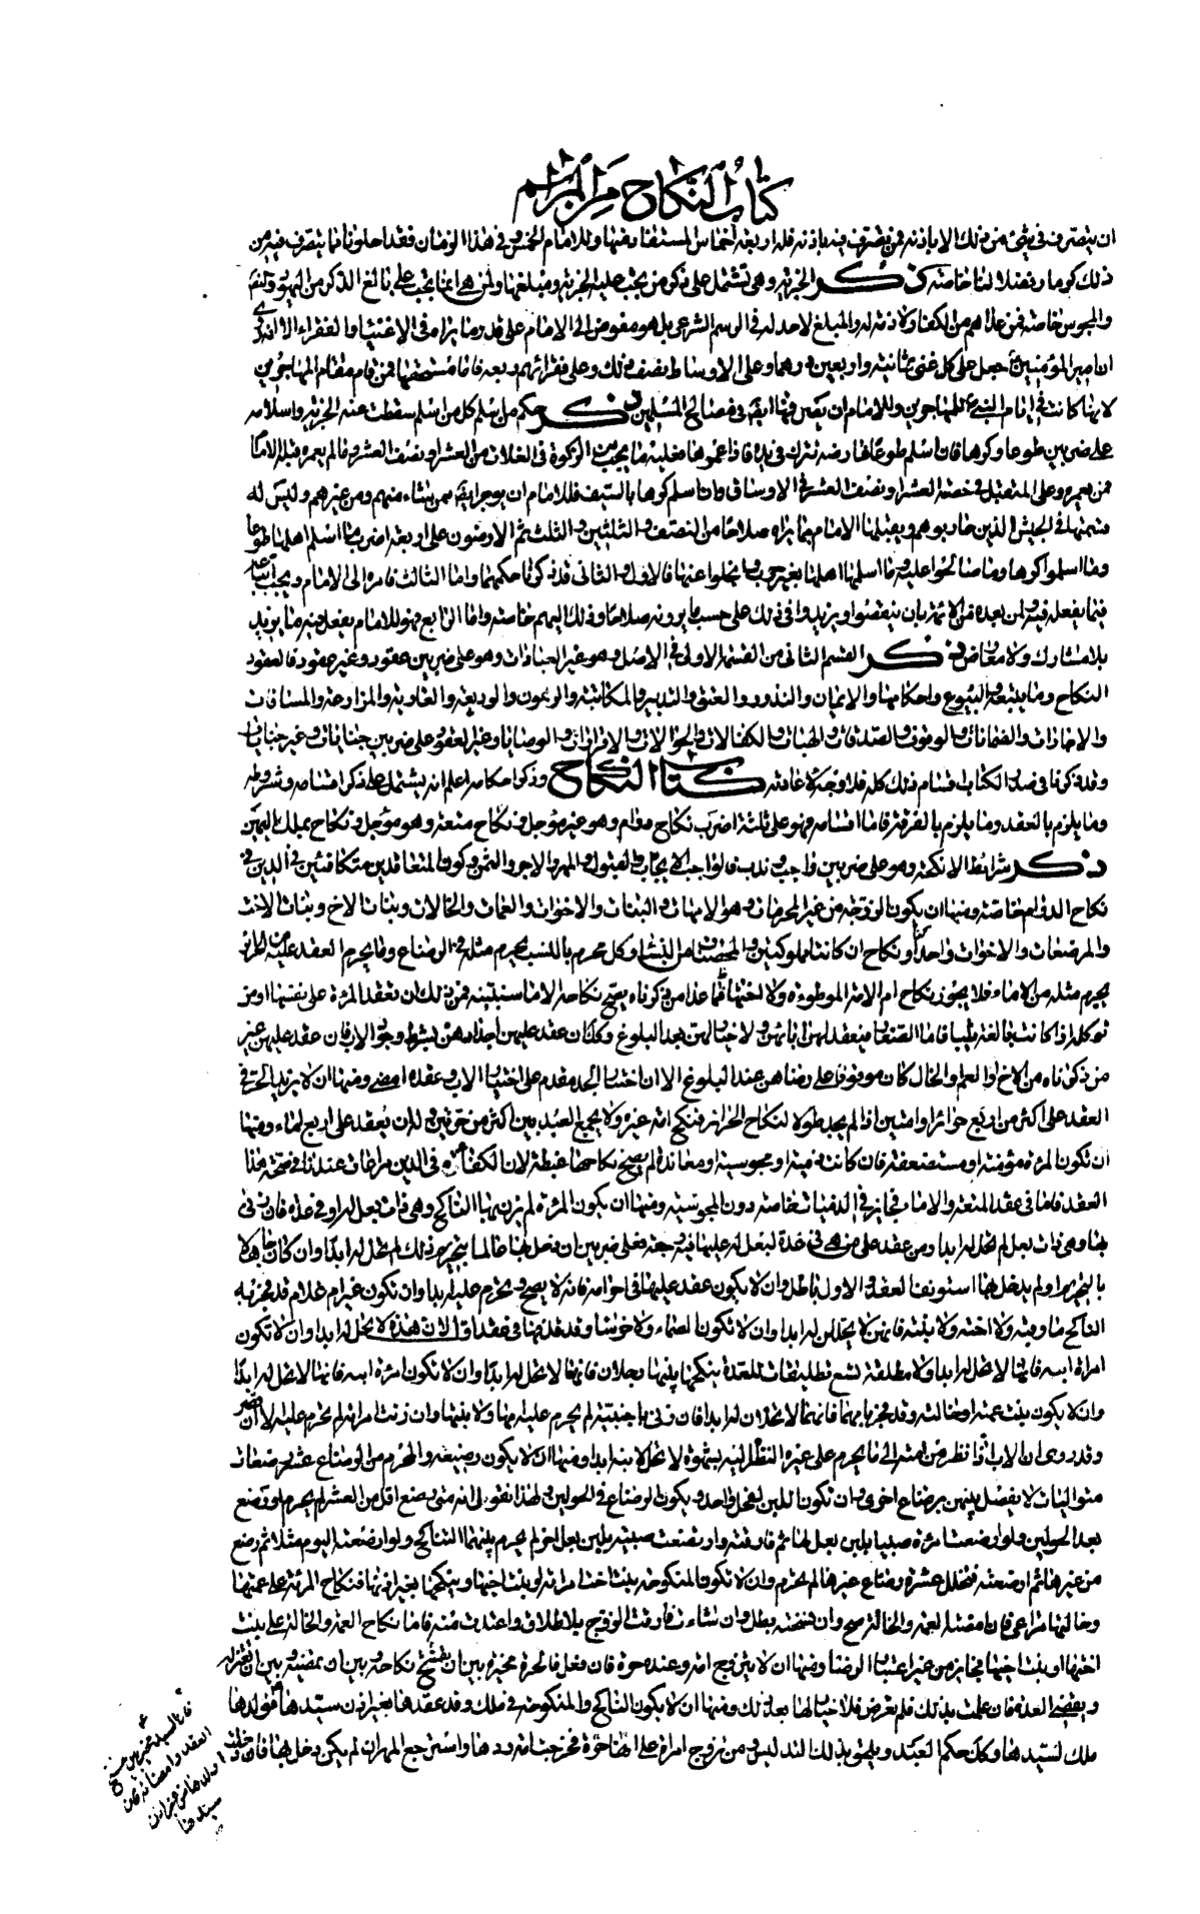 كتاب النكاح من المراسم
ان يتصرف في شئ من ذلك الا باذنه فمن تصرف فيه باذنه فله اربعة اخماس المستفاد منها وللامام الخمس وفي هذا الزمان فقد احلونا فيما نتصرف فيه من
ذلك كرما وفضلا لنا خاصة ذكر الجزية وهي تشتمل على ذكر من يجب عليه الجزية ومبلغها ولمن هي انما يجب على بالغ الذكر من اليهود والنصارى
والمجوس خاصة فمن عداهم من الكفار لا ذمة له والمبلغ لا حد له في الرسم الشرعي بل هو مفوض الى الامام على قدر ما يراه في الاغنياء والفقراء الا انه روي
ان امير المؤمنين ع جعل على كل غني ثمانية واربعين درهما وعلى الاوساط نصف ذلك وعلى فقرائهم ربعه فاما مستحقها فمن قام مقام المهاجرين
لانها كانت في ايام النبي ع للمهاجرين وللامام ان يصرفها ايضا في مصالح المسلمين ذكر حكم من اسلم كل من اسلم سقطت عنه الجزية واسلامه
على ضربين طوعا وكرها فان اسلم طوعا فارضه تترك في يده فاذا عمرها فعليه ما يجب من الزكوة في الغلات من العشر او نصف العشر وما لم يعمره قبله الامام
ممن يعمره وعلى المتقبل في حصته العشر او نصف العشر في الاوساق وان اسلم كرها بالسيف فللامام ان يوجر ارضهم من يشاء منهم ومن غيرهم وليس له
قسمتها في الجيش الذين حاربوهم ويقبلها الامام بما يراه صلاحا من النصف والثلثين والثلث ثم الارضون على اربعة اضرب ما اسلم اهلها طوعا
وما اسلموا كرها وما صالحوا عليه وما اسلمها اهلها بغير حرب او انجلوا عنها فالاول والثاني قد ذكرنا حكمهما واما الثالث فامره الى الامام ويجب اتباعه
فيما يفعل فيه ولمن بعده من الائمة بان ينقصوا ويزيدوا في ذلك على حسب ما يرونه صلاحا وذلك اليهم خاصة واما الرابع فهو للامام يفعل فيه ما يريد
بلا مشارك ولا معارض ذكر القسم الثاني من القسمة الاولى في الاصل وهو غير العبادات وهو على ضربين عقود وغير عقود فالعقود
النكاح وما يتبعه والبيوع واحكامها والايمان والنذور والعتق والتدبير والمكاتبة والرهون والوديعة والعارية والمزارعة والمساقات
والاجارات والضمانات والوقوف والصدقات والهبات والكفالات والحوالات والاقرارات والوصايا وغير العقود على ضربين جنايات وغير جنايات
وقد ذكرنا في صدر الكتاب اقسام ذلك كله فلا وجه لاعادته كتاب النكاح وذكر احكامه اعلم انه يشتمل على ذكر اقسامه وشروطه
وما يلزم بالعقد وما يلزم بالفرقة فاما اقسامه فهو على ثلثة اضرب نكاح دوام وهو غير مؤجل ونكاح متعة وهو مؤجل ونكاح بملك اليمين
ذكر شرائط الانكحة وهو على ضربين واجب وندب فالواجب الايجاب والقبول والمهر او الاجر والثمن وكون المتعاقدين متكافئين في الدين في
نكاح الدوام خاصة ومنها ان يكون الزوجة من غير المحرمات وهو الامهات والبنات والاخوات والعمات والخالات وبنات الاخ وبنات الاخت
والمرضعات والاخوات
يحرم مثله من الاماء فلا يجوز نكاح ام الامة الموطوءة ولا اختها فما عدا من ذكرناه يصح نكاحه الا ما سنبينه فمن ذلك ان تعقد المرءة على نفسها او من
توكله اذا كانت بالغة ثيبا فاما الصغار فيعقد لهن اباؤهن ولا خيار لهن بعد البلوغ وكذا ان عقد عليهن اجدادهن بشرط وجود الاب فان عقد عليهن غير
من ذكرناه من الاخ او العم او الخال كان موقوفا على رضاهن عند البلوغ الا ان اختيار الجد مقدم على اختيار الاب وعقده امضى ومنها ان لا يزيد الحر في
العقد على اكثر من اربع حرائر او امتين اذا لم يجد طولا لنكاح الحرائر فنكح امة غيره ولا يجمع العبد بين اكثر من حرتين وله ان يعقد على اربع اماء ومنها
ان تكون المرءة مؤمنة او مستضعفة فان كانت ذمية او مجوسية او معاندة لم يصح نكاحها غبطة لان الكفاءة في الدين مراعاة عندنا في صحة هذا
العقد فاما في عقد المتعة والاماء فجائز في الذميات خاصة دون المجوسية ومنها ان يكون المرءة لم يزن بها الناكح وهي ذات بعل او في عدة فان زنى
بها وهي ذات بعل لم تحل له ابدا ومن عقد على من هي في عدة لبعل له عليها فيه رجعة فعلى ضربين ان دخل بها عالما بتحريم ذلك لم تحل له ابدا وان كان جاهلا
بالتحريم او لم يدخل بها استونف العقد والاول باطل وان لا يكون عقد عليها في احرامه فانه لا يصح ويحرم عليه ابدا وان تكون غير ام غلام قد فجر به
الناكح فاوقبه ولا اخته ولا بنته فانهن لا يحللن له ابدا وان لا تكون الصماء ولا خرساء قد قذفها في عقد اول لان هذه لا تحل له ابدا وان لا تكون
امراة ابيه فانها لا تحل له ابدا ولا مطلقة تسع تطليقات للعدة ينكحها بينها رجلان فانها لا تحل له ابدا وان لا تكون امرءة ابنه فانها لا تحل له ابدا
وان لا يكون بنت عمته او خالته وقد فجر بامهما فانهما لا تحلان له ابدا فان زنى باجنبية لم يحرم عليه امها ولا بنتها وان زنت امراته لم تحرم عليه الا ان تصر
وقد روى ان الاب اذا نظر من امته الى ما يحرم على غيره النظر اليه بشهوة لا تحل لابنه ابدا ومنها ان لا يكون رضيعه والمحرم من الرضاع عشر رضعات
متواليات لا يفصل بينهن برضاع اخرى وان تكون اللبن لفحل واحد ويكون الرضاع في الحولين ولهذا نقول انه متى رضع اقل من العشر لم يحرم ولو رضع
بعد الحولين ولو ارضعت امرءة صبيا بلبن بعل لها ثم فارقته وارضعت صبية بلبن بعل اخر لم يحرم بينهما التناكح ولو ارضعته اليوم مثلا ثم رضع
من غيرها ثم ارضعته فتخلل عشره رضاع غيرها لم يحرم وان لا تكون المنكوحة بنت اخت امراته او بنت اخيها وينكحها بغير اذنها فنكاح المرءة على عمتها
وخالتها مراعى فان امضته العمة والخالة صح وان فسخته بطل وان شاءت فارقت الزوج بلا طلاق واعتدت منه فاما نكاح العمة والخالة على بنت
اختها او بنت اخيها فجائز من غير اعتبار الرضا ومنها ان لا يتزوج امة وعنده حرة فان فعل فالحرة مخيرة بين ان يفسخ نكاحه وبين ان تمضيه وبين ان تعتزله
ويقضي العدة فان علمت بذلك فلم تعترض فلا خيار لها بعد ذلك ومنها ان لا يكون الناكح والمنكوحة في ملك وقد عقدها بغير اذن سيدها فولدها
ملك لسيدها وكك حكم العبد ويلحق بذلك التدليس ومن تزوج امراة على انها حرة فخرجت امة ردها واسترجع المهر ان لم يكن دخل بها فان دخل
فان السيد مخير بين فسخ
العقد وامضائه فان
اولدها من غير اذن
سيدها